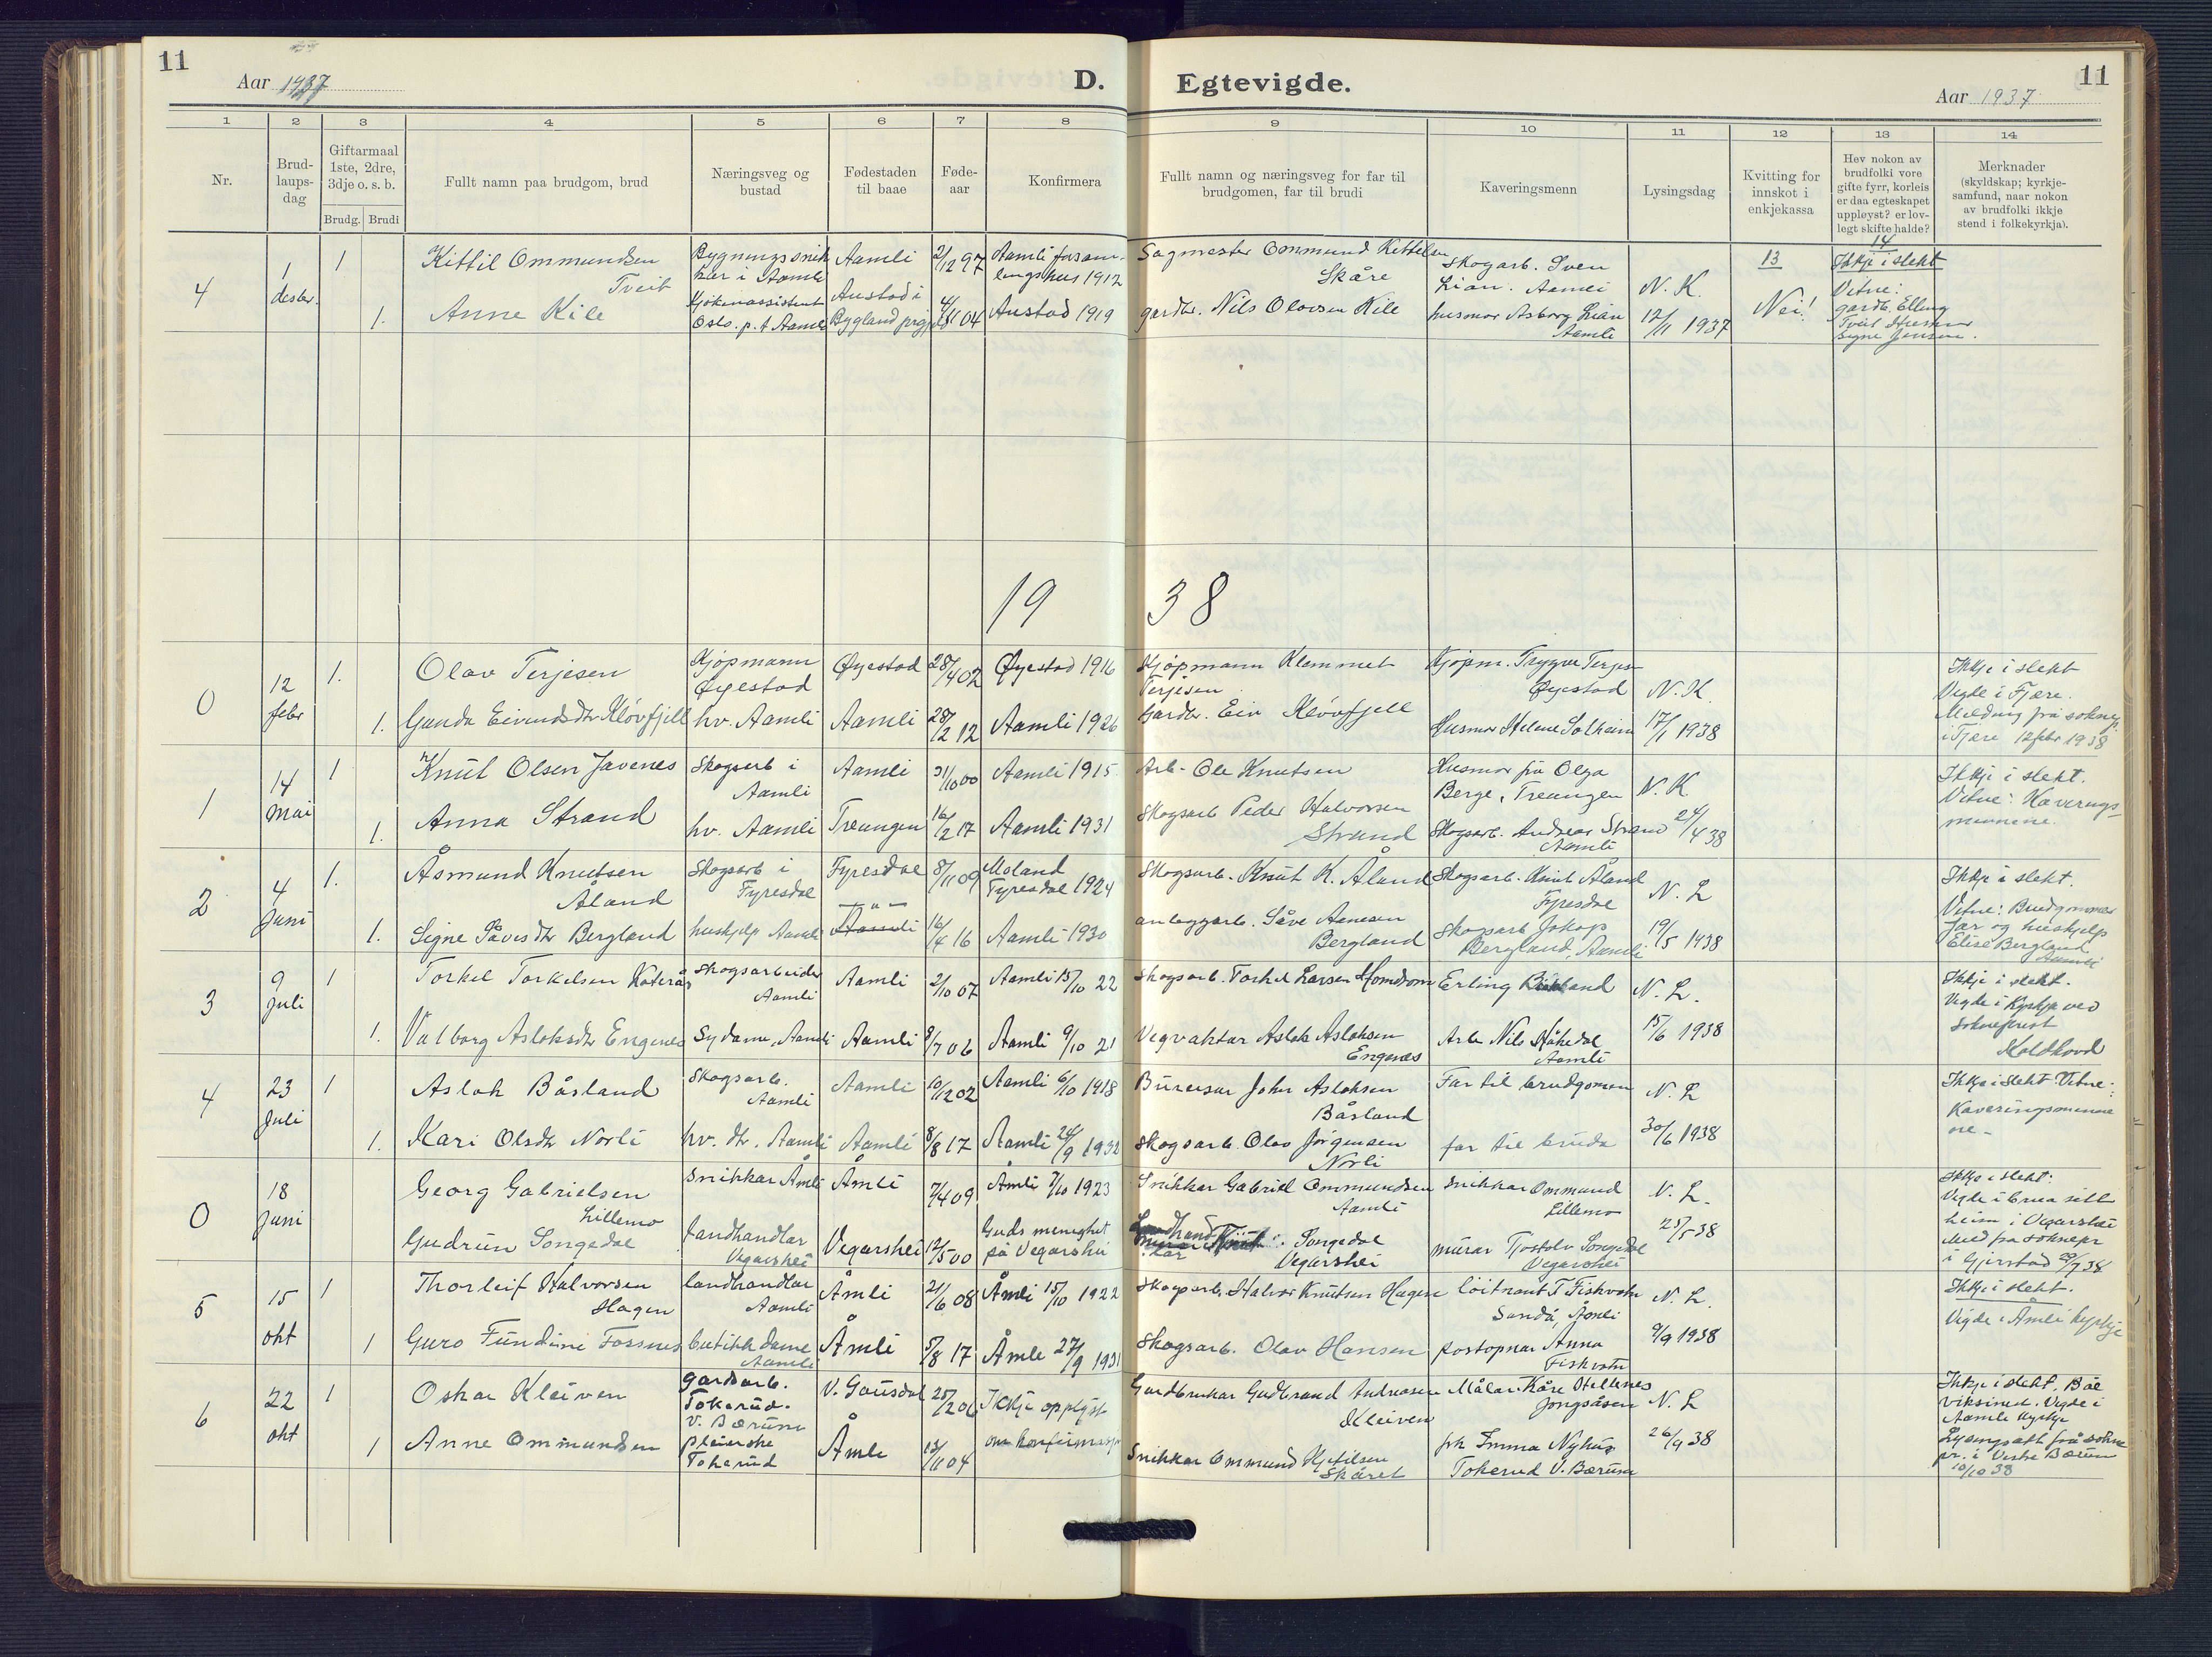 11
Aar 1937
D.
Egtevigde.
11
Aar 1937
1 2 3 4 5 6 7 8 9 10 11 12 13 14
Nr.
Brud-
laups-
dag
Giftarmaal
1ste, 2dre,
3dje o. s. b.
Brudg. Brudi
Fullt namn paa brudgom, brud
Næringsveg og
bustad
Fødestaden
til baae
Føde-
aar
Konfirmera
Fullt namn og næringsveg for far til
brudgomen, far til brudi
Kaveringsmenn
Lysingsdag
Kvitting for
innskot i
enkjekassa
Hev nokon av
brudfolki vore
gifte fyrr, korleis
er daa egteskapet
uppløyst? er lov-
legt skifte halde?
Merknader
(skyldskap; kyrkje-
samfund, naar nokon
av brudfolki ikkje
stend i folkekyrkja).
4
1
desbr.
1
Kittil Ommundsen
Tveit
Bygningssnik
ker i Aamli
Aamli
2/12 97
Aamli forsam-
lingshus 1912
Sagmester Ommund Kittelsen
Skåre
Skogarb. Sven
Lian. Aamli
N. K.
13
14
Ikkje i slekt
1.
Anne Kile
Kjøkenassistent
Oslo. p. t Aamli
Austad i
Bygland prgj
4/11 04
Austad 1919
gardbr. Nils Olovsen Kile
husmor Asborg Lian
Aamli
12/11 1937
Nei!
Vitne:
gardb. Elling
Tveit
Signe Jensen.
19 38
0
12
febr
1.
Olav Terjesen
Kjøpmann
Øyestad
Øyestad
28/4 02
Øyestad 1916
Kjøpmann Klemmet
Terjesen
Kjøpm. Trygve Terjesn
Øyestad
N. K.
Ikkje i slekt
Vigde i Fjære.
Melding frå soknep.
i Fjære 12 febr 1938
1.
Gunda Eivindsdtr Kløvfjell
hv. Aamli
Aamli
28/2 12
Aamli 1926
Gardbr. Eiv Kløvfjell
Husmor Helene Solheim
17/1 1938
1
14
mai
1
Knut Olsen Javenes
Skogsarb i
Aamli
Aamli
31/10 00
Aamli 1915
Arb- Ole Knutsen
Husmor frå Olga
Berge, Treungen
N. K
Ikkje i slekt.
Vitne: Kaverings-
mennene.
1.
Anna Strand
hv. Aamli
Treungen
16/2 17
Aamli 1931
Skogsarb Peder Halvorsen
Strand
Skogsarb. Andreas Strand
Aamli
24/4 38
2
4
Juni
1.
Åsmund Knutsen
Åland
Skogsarb i
Fyresdal
Fyresdal
8/11 09
Moland
Fyresdal 1924
Skogsarb. Knut K. Åland
Skogsarb. Knut Åland
Fyresdal
N. L
Ikkje i slekt.
Vitne: Brudgommens
far og hushjelp
Elise Bergland
Aamli
1.
Signe Såvesdtr Bergland
hushjelp Aamli
— „ —
Aamli
16/4 16
Aamli 1930
anleggarb. Såve Aanesen
Bergland
Skogsarb Jakop
Bergland, Aamli
19/5 1938
3
9
Juli
1
Torkel Torkelsen Katerås
Skogsarbeider
Aamli
Aamli
2/10 07
Aamli 15/10 22
Skogsarb. Torkel Larsen Homdrom
Erling
N. L.
Ikkje i slekt.
Vigde i Kyrkja ved
Sokneprest
Koldhovd
1.
Valborg Asloksdtr Engenes
Sydame, Aamli
Aamli
8/7 06
Aamli 9/10 21
Vegvaktar Aslok Asloksen
Engenes
Arb Nils Håkedal
Aamli
15/6 1938
4
23
Juli
1
Aslak Båsland
Skogsarb.
Aamli
Aamli
10/12 02
Aamli 6/10 1918
Bureisar John Asloksen
Båsland
Far til brudgomen
N. L
Ikkje i slekt. Vitne:
Kaveringsmenne
ne-
1.
Kari Olsdtr Norli
hv. dtr. Aamli
Aamli
8/8 17
Aamli 24/9 1932
Skogsarb. Olav Jørgensen
Norli
far til bruda
30/6 1938
0
18
Juni
Georg Gabrielsen
Lillemo
Snikkar Åmli
Åmli
7/4 09
Åmli 7/10 1923
Snikkar Gabriel Ommundsen
Aamli
Snikkar Ommund
Lillemo
N. L.
Ikkje i slekt:
Vigde i brura sitt
heim i Vegarshei
Meld fra soknepr
i Gjerstad 29/7 38
Gudrun Songedal
Landhandlar
Vegarshei
Vegarshei
12/5 00
Guds menighet
på Vegarshei
Landhand
lar Songedal
Vegarshei
murar Tjostolv Songedal
Vegarshei
25/5 38
5
15
okt
1
Thorleif Halvorsen
Hagen
landhandlar
Aamli
Åmli
21/6 08
Åmli 15/10 1922
Skogsarb. Halvor Knutsen Hagen
löitnant T Fiskvatn
Sandå, Åmli
N. L.
Ikkje i slekt.
Vigde i Åmli kyrkje
1
Guro Fundine Fossnes
butikkdame
Aamli
Åmli
5/8 17
Åmli 27/9 1931
Skogsarb. Olav Hansen
postopnar Anna
Fiskvatn
9/9 1938
6
22
okt
1
Oskar Kleiven
Gardsarb.
Tokerud.
V. Bærum
V. Gausdal
25/2 06
Ikkje opplyst
Gardbrukar Gudbrand Andreasen
Kleiven
Målar. Kåre Hellenes
Jongsåsen
N. L
Ikkje i slekt. Båe
Vigde i
Aamli kyrkje
Lysingsatt frå sokne
pr. i Vestre Bærum
10/10 38
1
Anne Ommundsen
pleierske
Tokerud
Åmli
13/11 04
om konfirmasjon
Snikkar Ommund Kjetilsen
Skåret
frk Emma Nyhus
Tokerud V. Bærum
26/9 38